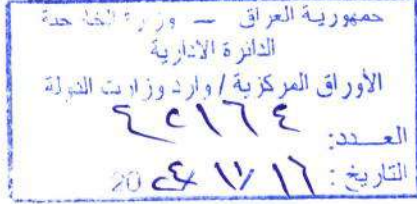 جمهورية العراق — وزارة الخارجية
الدائرة الادارية
الأوراق المركزية / وارد وزارات الدولة
العــدد: ٤٢١٦٤
التاريخ: ١٦ / ١١ / 20٢٤